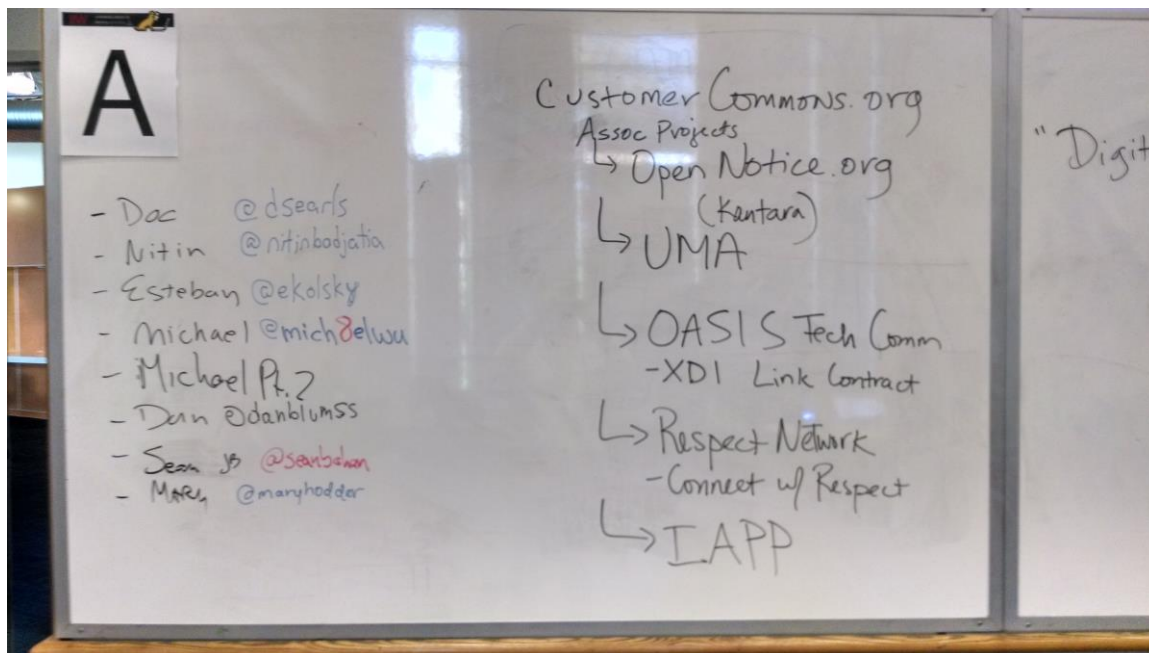 A
- Doc @dsearls
- Nitin @nitinbadjatia
- Esteban @ekolsky
- Michael @mich8elwu
- Michael Pt. 2
- Dan @danblum55
- Sean @seanbohan
- Mary @maryhodder
Customer Commons.org
Assoc Projects
↳ Open Notice.org
(Kantara)
↳ UMA
↳ OASIS Tech Comm
- XDI Link Contract
↳ Respect Network
- Connect w/ Respect
↳ IAPP
"Digit